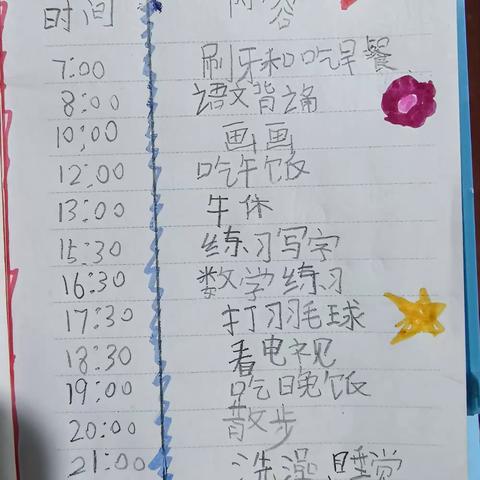 时间 内容
7:00 刷牙和吃早餐
8:00 语文背诵
10:00 画画
12:00 吃午饭
13:00 午休
15:30 练习写字
16:30 数学练习
17:30 打羽毛球
18:30 看电视
19:00 吃晚饭
20:00 散步
21:00 洗澡睡觉